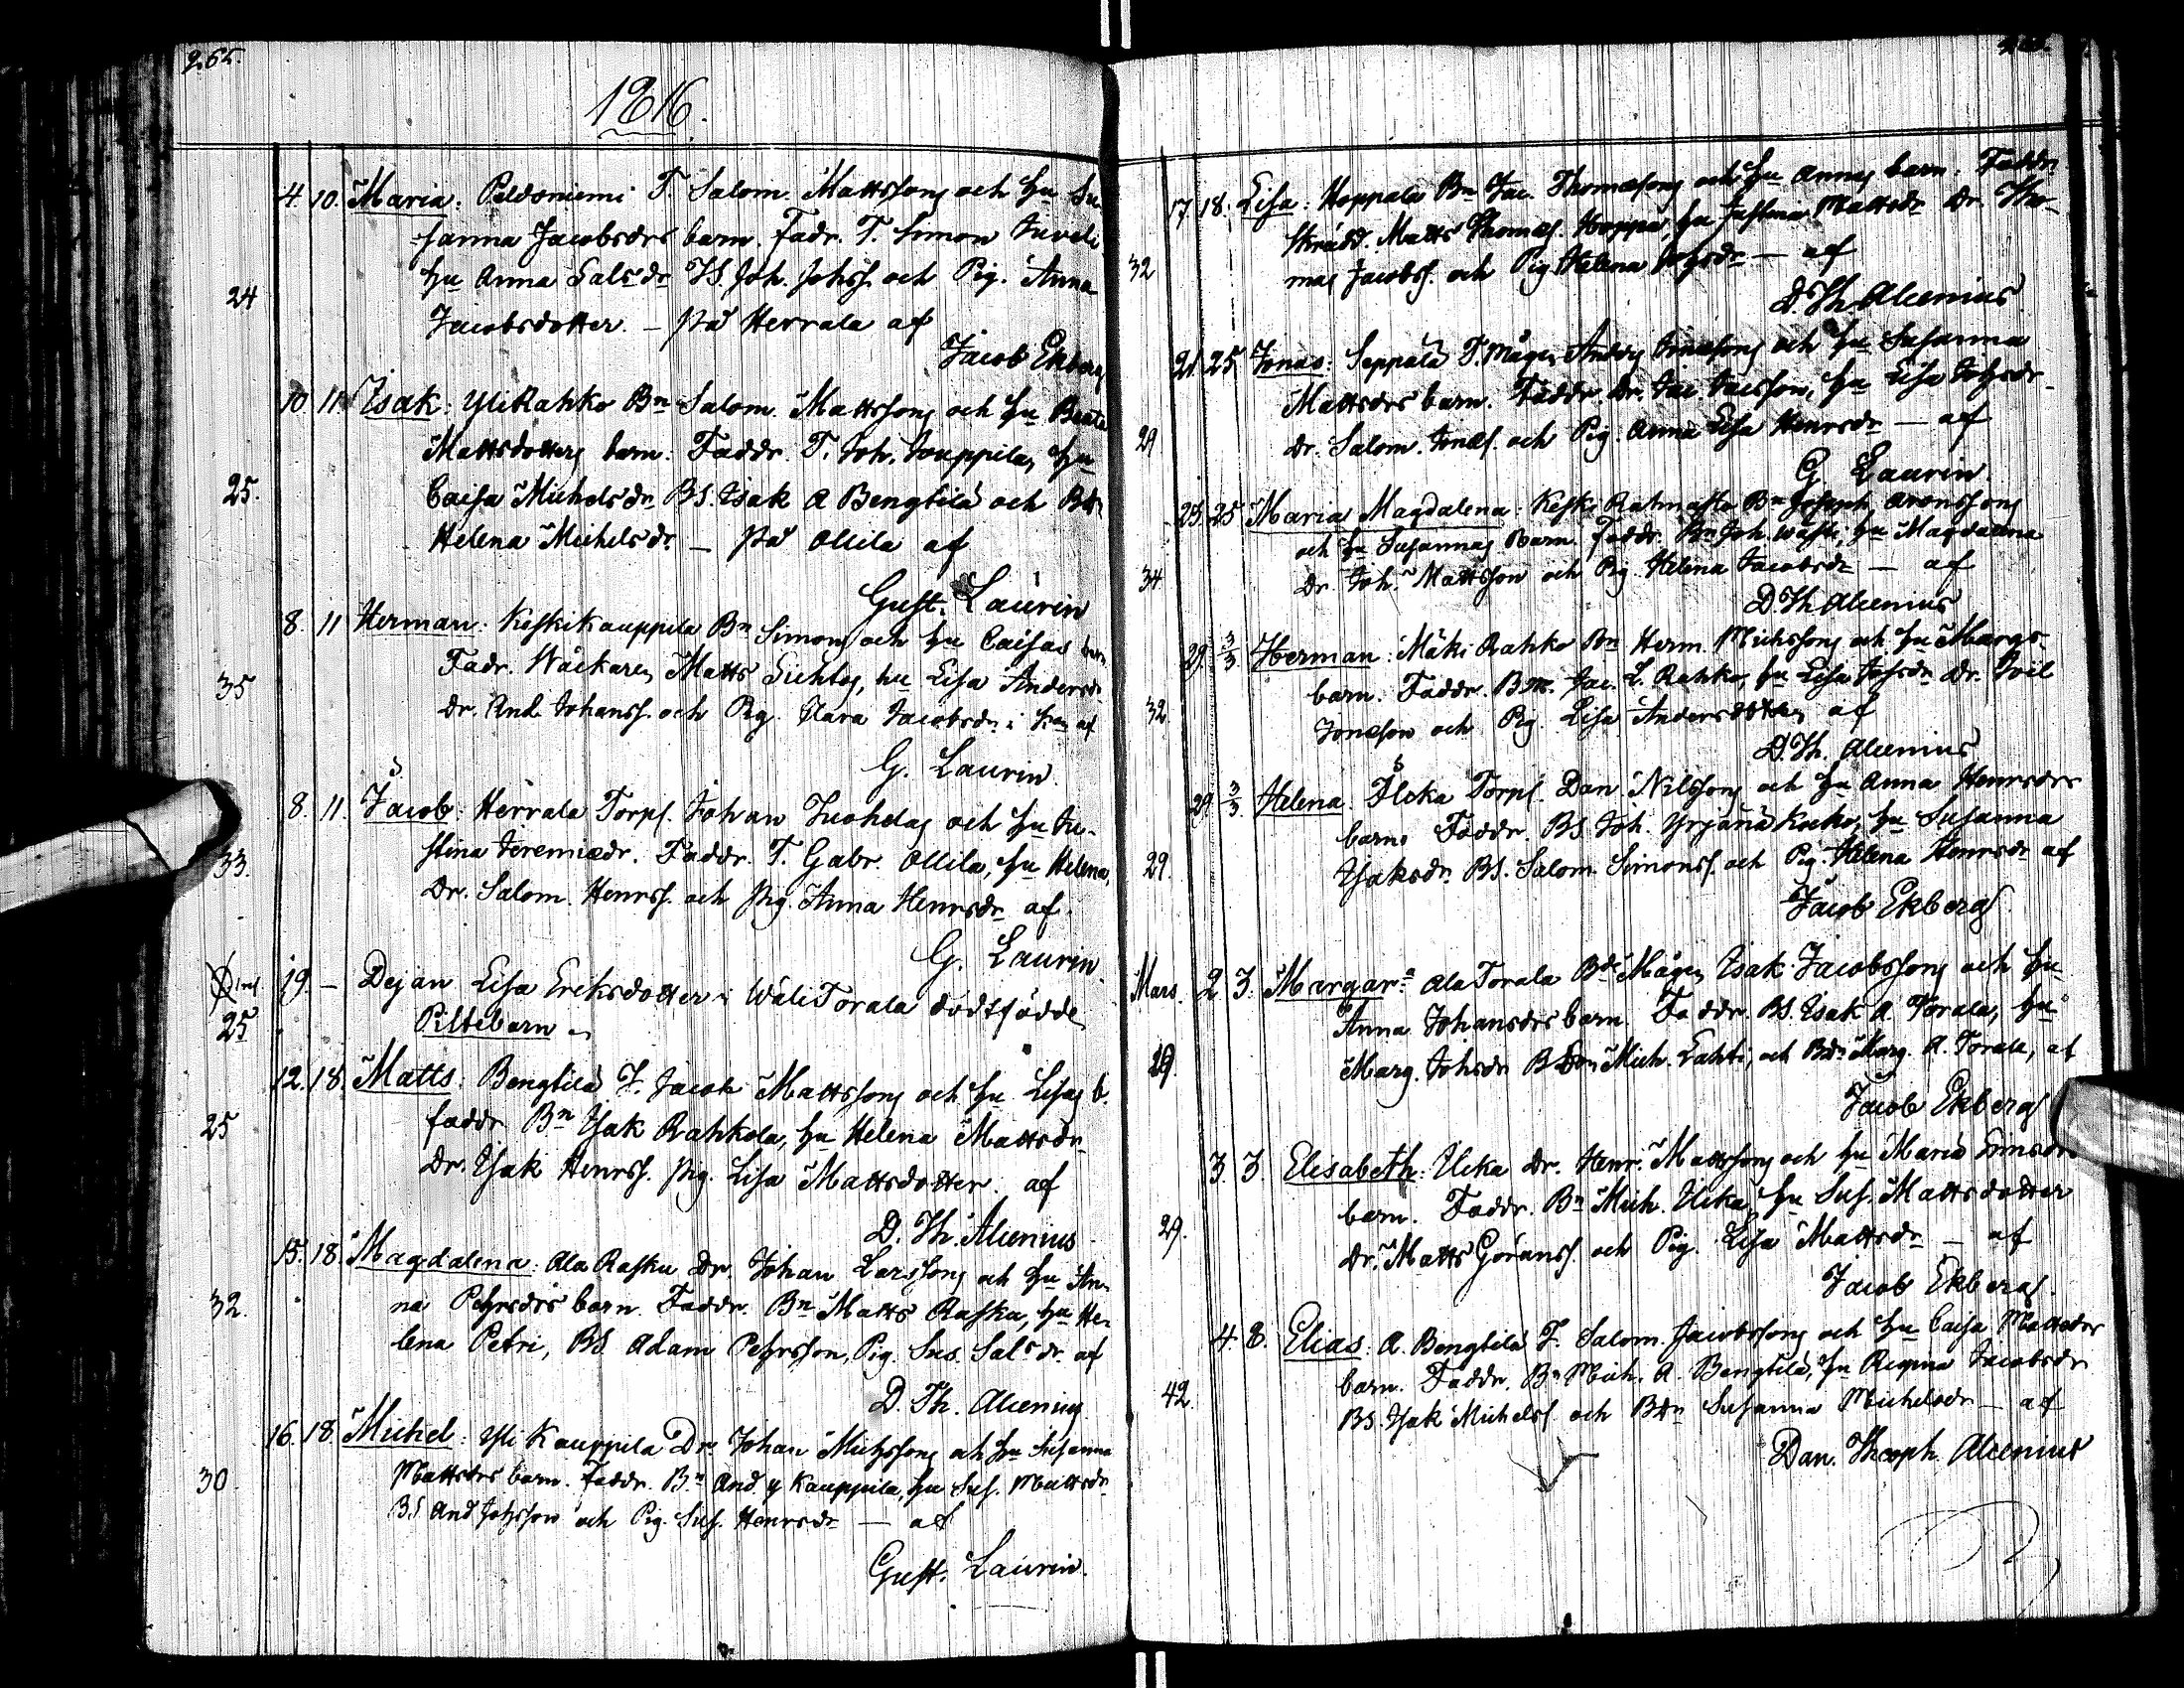 265.
1816.
4. 10. Maria: Peldoniemi T. Salom. Mattssons och hu Su-
sanna Jacobsdrs barn. Fadr. T. Simon Juveli
hu Anna Salsdr BS. Joh. Johss. och Pig. Anna
24
Jacobsdotter. — på Herrala af
Jacob Ekberg
10. 11. Isak: Yli Rahko Bn Salom. Mattssons och hu Beata
Mattsdotters barn. Faddr. T. Joh. Jouppila, hu
25. Caisa Michelsdr. BS. Isak A Bengtilä och Bdr
Helena Michelsdr. — på Ollila af
Gust. Laurin
8. 11 Herman: Keskikauppila Bn Simons och hu Caisas barn
Fadr. Matts hu Lisa Andersdr
35
Dr. And. Johanss. och Pig. Clara Jacobsdr. af
G. Laurin.
8. 11. Jacob: Herrala Torp. Johan och hu Ju-
stina Jeremiædr. Faddr. T. Gabr. Ollila, hu Helena,
33.
Dr. Salom. Henrss. och Pig. Anna Henrsdr af
G. Laurin
19. — Dejan Lisa Eriksdotter i WäliTorala dödfödde
25 Piltebarn
12. 18. Matts: Bengtilä T. Jacob Mattssons och hu Lisas b.
25 faddr Bn Isak Rahkola, hu Helena Mattsdr
Dr. Isak Henrss. Pig. Lisa Mattsdotter af
D. Th. Alcenius
15. 18. Magdalena: Ala Rasku Dr. Johan Larssons och hu An-
32. na Pehrsdrs barn. Faddr. Bn Matts Rasku, hu He-
lena Petri, BS. Adam Pehrsson, Pig. Sus. Salsdr. af
D. Th. Alcenius
16. 18. Michel: Yli Kauppila Dr. Johan Michssons och hu Susanna
30. Mattsdrs barn. Faddr. Bn And. Y Kauppila, hu Sus. Mattsdr
BS And Johsson och Pig. Sus. Henrsdr — af
Gust. Laurin.
17. 18. Lisa: Hoppala Bn Jac. Thomæsons och hu Annas barn. Faddr.
Skrädd. Matts Thomæs. Hoppa, hu Justina Mattsdr Dr. Tho-
32 mas Jacobss. och Pig Helena Johsdr — af
D. Th. Alcenius
21. 25 Jonas: Seppälä T. Mågen Anders Jonæsons och hu Susanna
Mattsdrs barn. Faddr. Dr. Jac. Jacsson, hu Lisa Johsdr
29 Dr. Salom. Jonæs. och Pig. Anna Lisa Henrsdr — af
G. Laurin.
25. 25 Maria Magdalena: Keski Ratmasto Bn Joseph Aronssons
och hu Susannas barn. Faddr. Bn Joh. hu Magdalena
34 Dr. Joh. Mattsson och Pig. Helena Jacobsdr — af
D Th Alcenius
29. 3/3 Herman: Mäki Rahko Bn Herm. Michssons och hu Margs.
barn. Faddr. Bn. Jac. L. Rahko, hu Lisa Johsdr Dr. Joel
32. Jonæson och Pig. Lisa Andersdotter af
D. Th. Alcenius
29. 3/3 Helena Ilcka Torp. Dan. Nilssons och hu Anna Henrsdrs
barn. Faddr. BS. Joh. Yrjänäkoko, hu Susanna
29. Isaksdr. BS. Salom. Simonss. och Pig. Helena Henrsdr af
Jacob Ekberg
Mars. 2. 3. Margar.a Ala Torala Bds Mågen Isak Jacobssons och hu
Anna Johansdrs barn. Faddr. BS. Isak A. Torala, hu
29. Marg. Johsdr Mich. Lahti, och Bdr Marg. A. Torala, af
Jacob Ekberg
3. 3. Elisabeth: Ilcka Dr. Henr. Mattssons och hu Maria Simsdrs
barn. Faddr. Bn Mich. Ilcka, hu Sus. Mattsdotter
29. Dr. Matts Göranss. och Pig. Lisa Mattsdr — af
Jacob Ekberg
4. 8. Elias: A. Bengtilä T. Salom. Jacobssons och hu Caisa Mattsdrs
barn. Faddr. Bn Mich. A. Bengtilä, hu Regina Jacobsdr
42. BS. Isak Michelss. och Bdr Susanna Michelsdr — af
Dan. Theoph. Alcenius